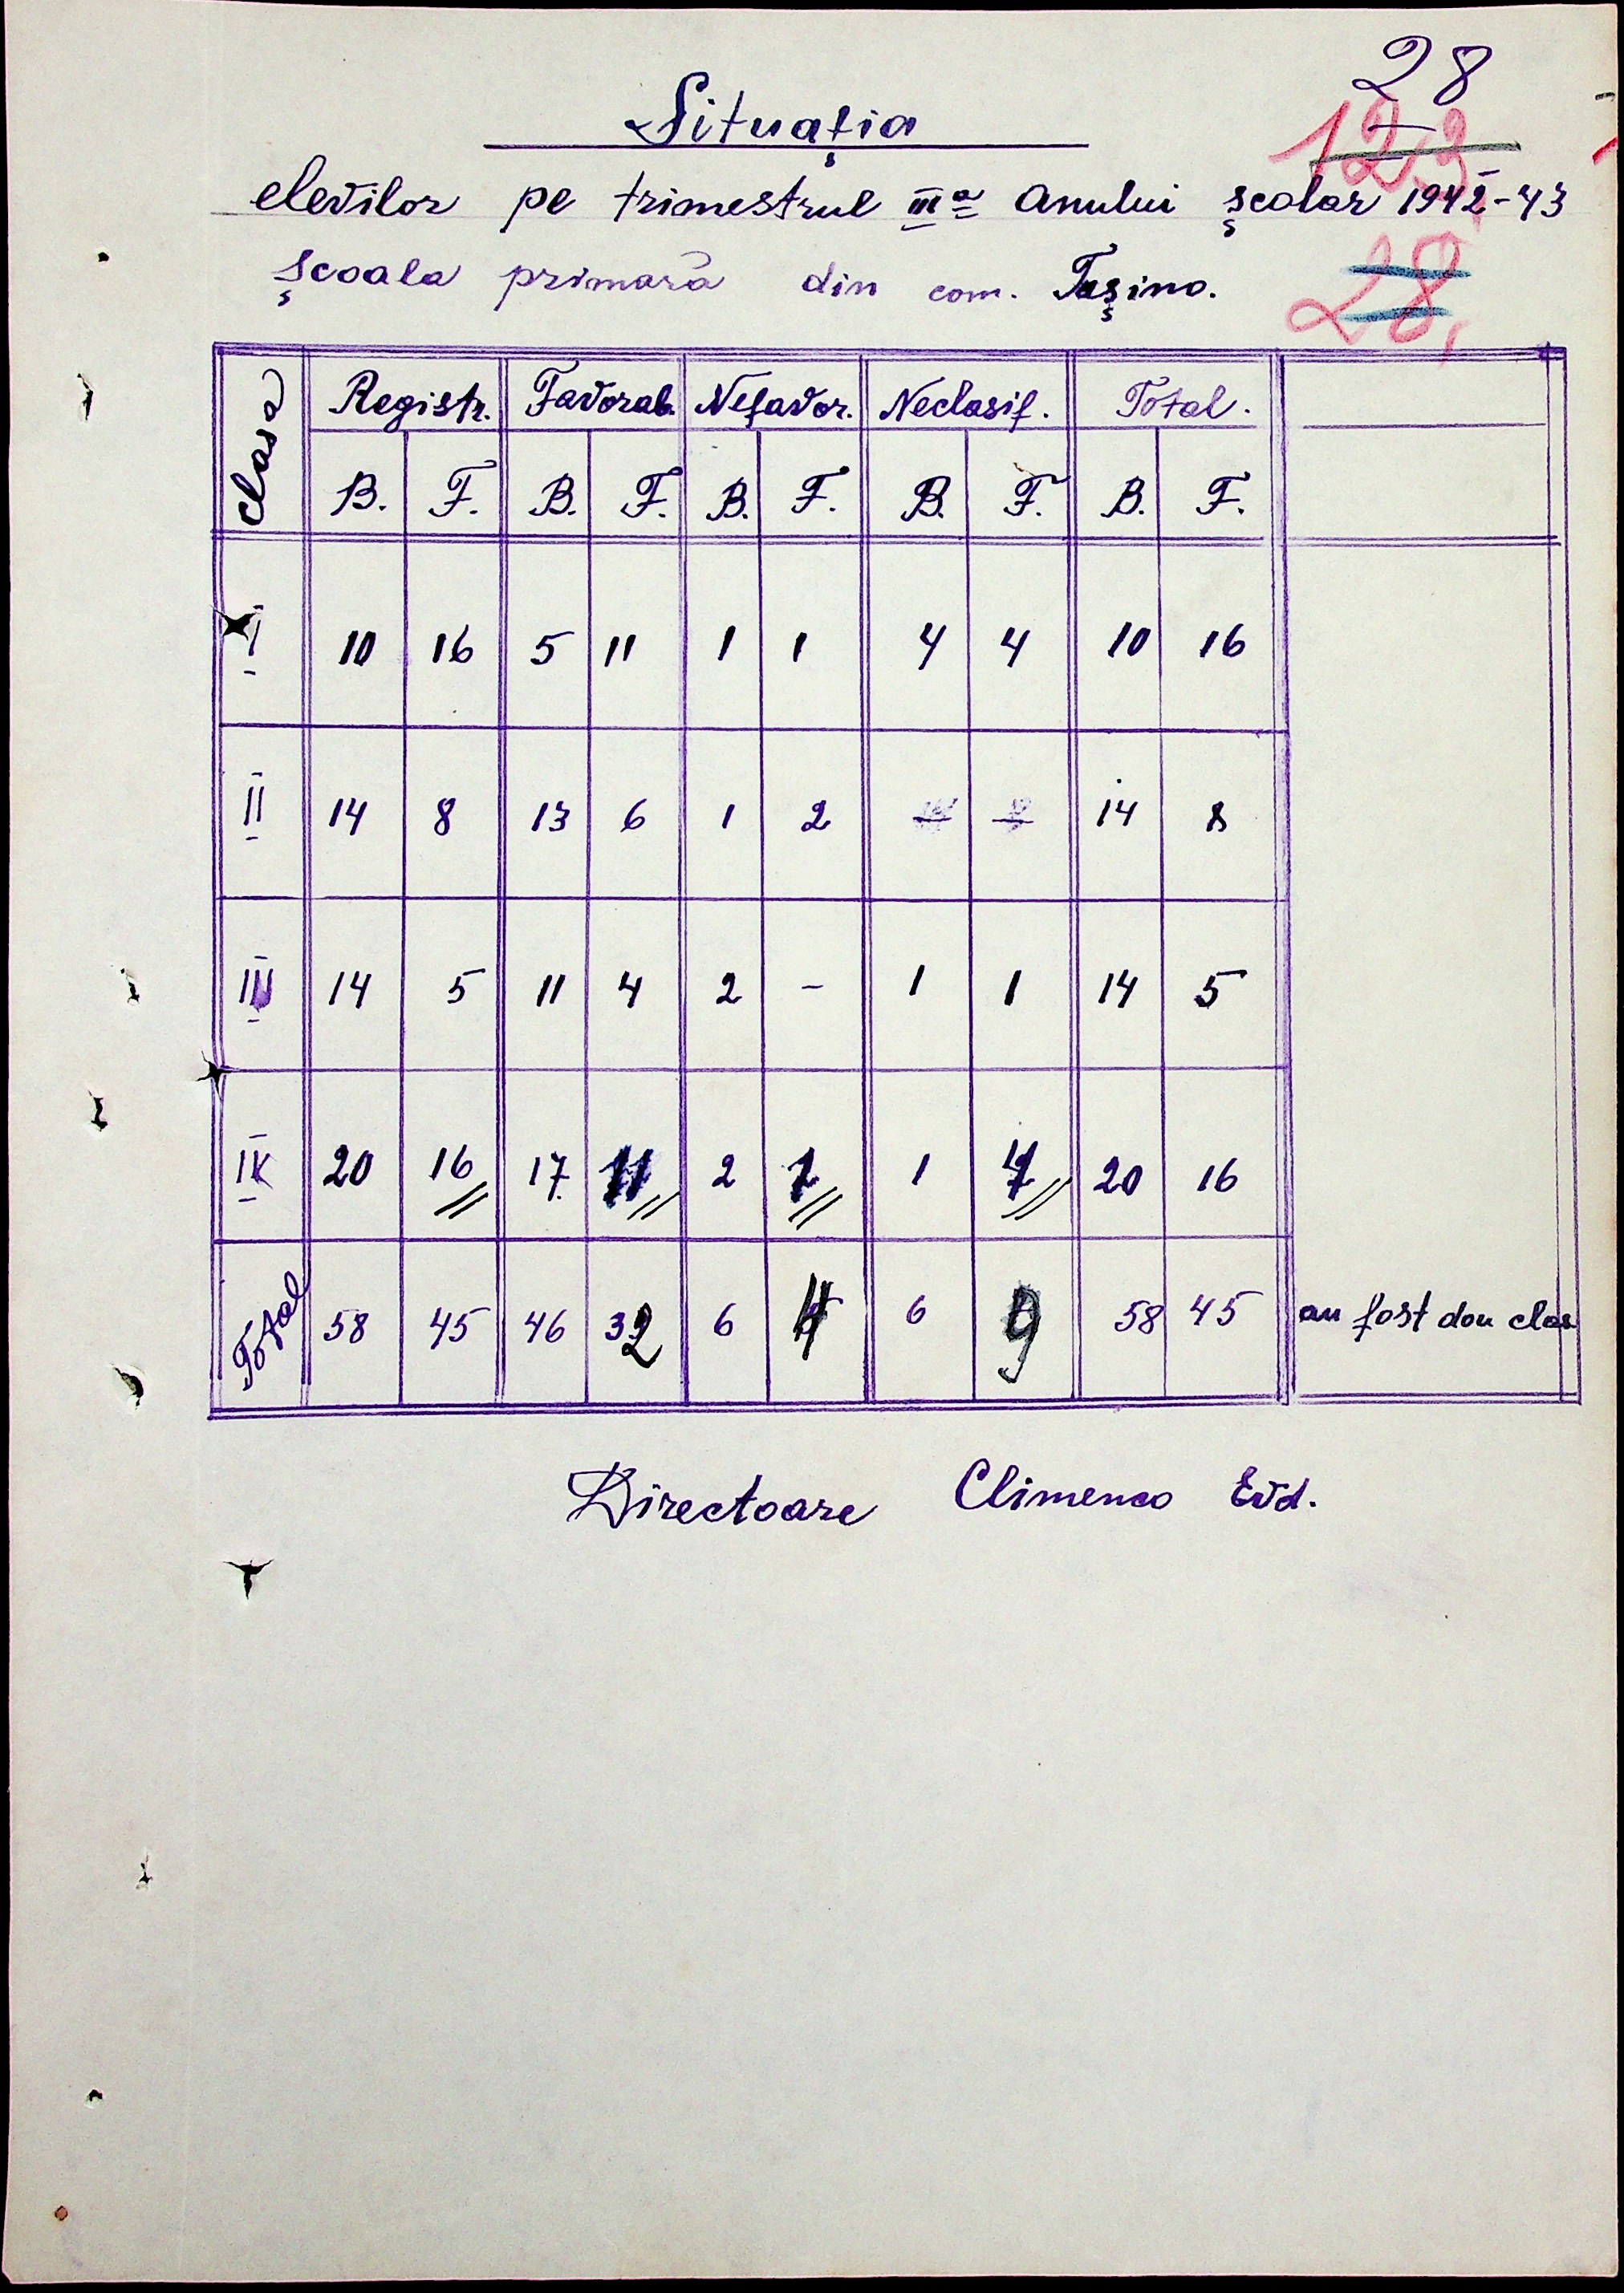 28
123
Situația
elevilor pe trimestrul III a anului școlar 1942-43
28,
Școala primară din com. Tașino.
clasa Registr. Favorab. Nefavor. Neclasif. Total.
B. F. B. F. B. F. B. F. B. F.
I 10 16 5 11 1 1 4 4 10 16
II 14 8 13 6 1 2 — — 14 8
III 14 5 11 4 2 - 1 1 14 5
IV 20 16 17. 11 2 1 1 4 20 16
Total 58 45 46 32 6 4 6 9 58 45 au fost dou clas.
Directoare Climenco Evd.